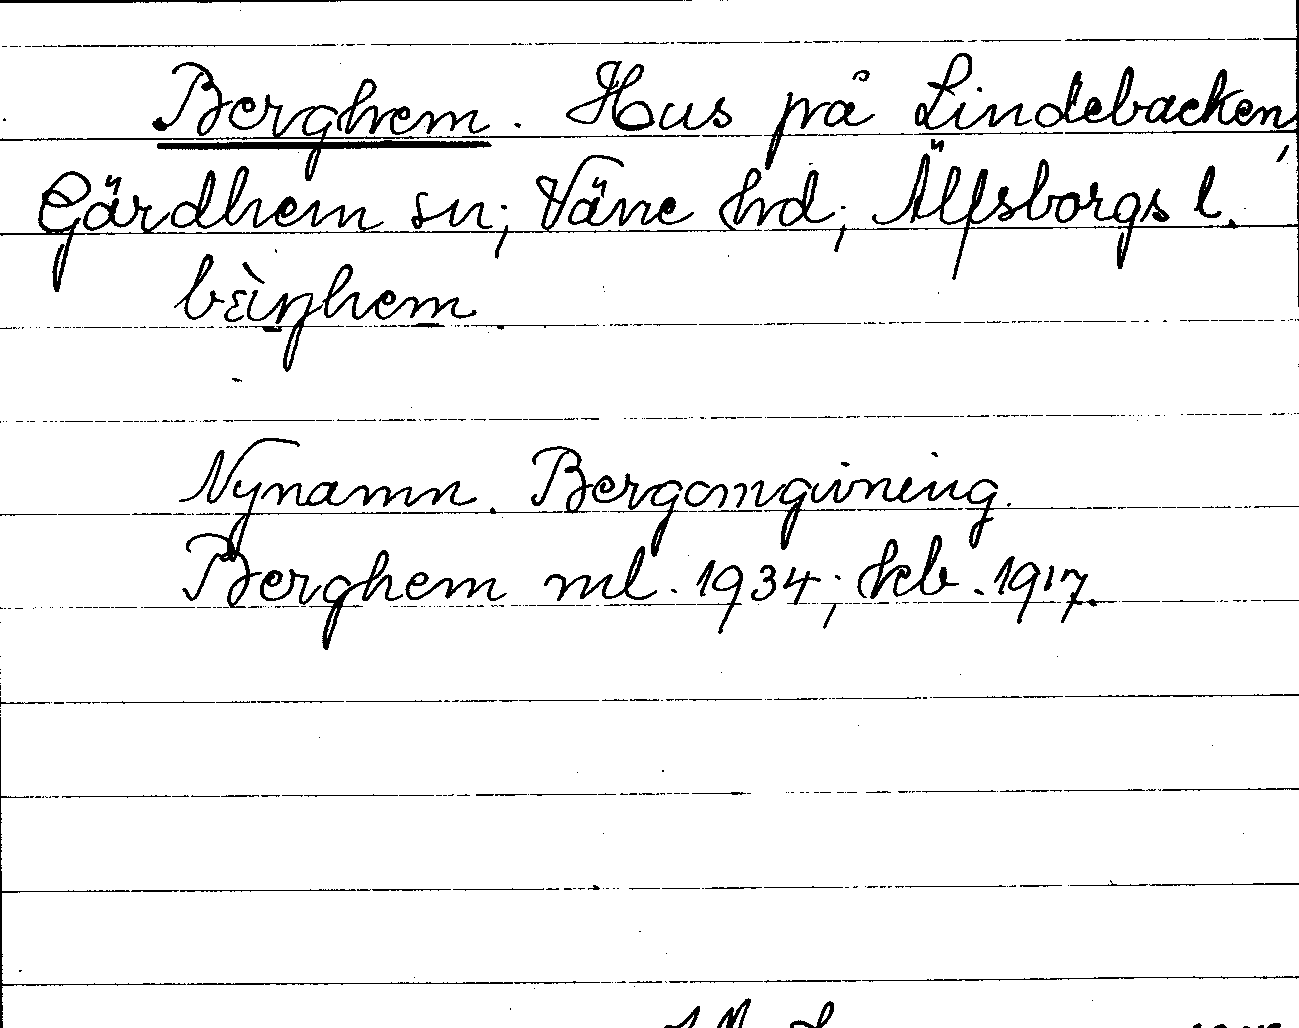 Berghem. Hus på Lindebacken,
Gärdhem sn; Väne hd; Älfsborgs l.
Nynamn. Bergomgivning.
Berghem ml. 1934; hcb. 1917.